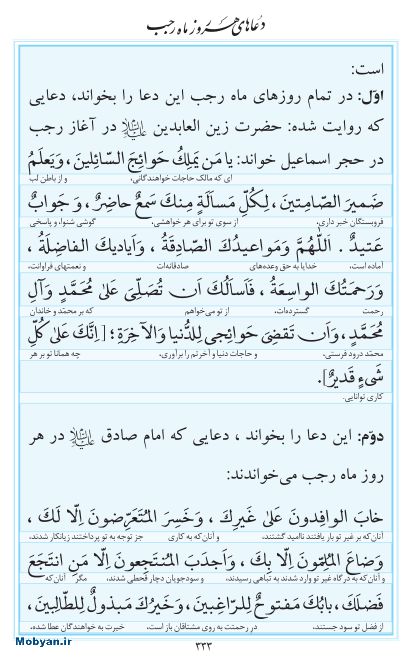 دعاهای هر روز ماه رجب
است:
اوّل: در تمام روزهای ماه رجب این دعا را بخواند، دعایی
که روایت شده: حضرت زین العابدین علیه‌السلام در آغاز رجب
در حجر اسماعیل خواند: یا مَن یَملِکُ حَوائِجَ السّائِلینَ ، وَیَعلَمُ
ای که مالک حاجات خواهندگانی، و از باطن لب
ضَمیرَ الصّامِتینَ ، لِکُلِّ مَسأَلَةٍ مِنكَ سَمعٌ حاضِرٌ ، وَ جَوابٌ
فروبستگان خبر داری، از سوی تو برای هر خواهشی، گوشی شنوا، و پاسخی
عَتیدٌ . اَللّٰهُمَّ وَمَواعیدُكَ الصّادِقَةُ ، وَاَیادیكَ الفاضِلَةُ ،
آماده است، خدایا به حق وعده‌های صادقانه‌ات و نعمتهای فراوانت،
وَرَحمَتُكَ الواسِعَةُ ، فَاَسأَلُكَ اَن تُصَلِّیَ عَلیٰ مُحَمَّدٍ وَآلِ
رحمت گسترده‌ات، از تو می‌خواهم که بر محمّد و خاندان
مُحَمَّدٍ ، وَاَن تَقضِیَ حَوائِجی لِلدُّنیا وَالآخِرَةِ؛ [اِنَّكَ عَلیٰ کُلِّ
محمّد درود فرستی، و حاجات دنیا و آخرتم را برآوری، چه همانا تو بر هر
شَیءٍ قَدیرٌ].
کاری توانایی.
دوّم: این دعا را بخواند ، دعایی که امام صادق علیه‌السلام در هر
روز ماه رجب می‌خواندند:
خابَ الوافِدونَ عَلیٰ غَیرِكَ ، وَخَسِرَ المُتَعَرِّضونَ اِلّا لَكَ ،
آنان‌که بر غیر تو بار یافتند ناامید گشتند، و آنان که به کاری جز توجه به تو پرداختند زیانکار شدند،
وَضاعَ المُلِمّونَ اِلّا بِكَ ، وَاَجدَبَ المُنتَجِعونَ اِلّا مَنِ انتَجَعَ
و آنان که به درگاه غیر تو وارد شدند به تباهی رسیدند، و سودجویان دچار قحطی شدند، مگر آنان که
فَضلَكَ، بابُكَ مَفتوحٌ لِلرّاغِبینَ، وَخَیرُكَ مَبذولٌ لِلطّالِبینَ،
از فضل تو سود جستند، در رحمتت به روی مشتاقان باز است، خیرت به خواهندگان عطا شده،
Mobyan.ir
۳۳۳